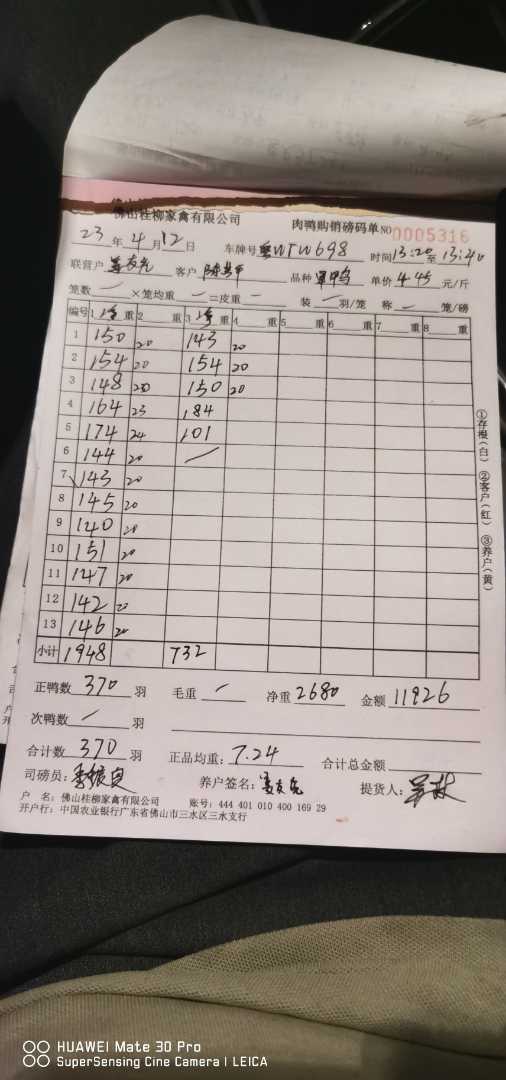 佛山桂柳家禽有限公司
肉鸭购销磅码单 NO 0005316
23 年 4 月 12 日 车牌号 粤WTW698 时间 13:20 至 13:40
联营户 客户 品种 单价 4.45 元/斤
笼数 一 ×笼均重 一 =皮重 一 装 一 羽/笼 称 一 笼/磅
编号 1 重 2 重 3 重 4 重 5 重 6 重 7 重 8 重
1 150 20 143 20
2 154 20 154 20
3 148 20 150 20
4 164 23 184
5 174 24 101
6 144 20 /
7 143 20
8 145 20
9 140 20
10 151 20
11 147 20
12 142 20
13 146 20
小计 1948 732
正鸭数 370 羽 毛重 / 净重 2680 金额 11926
次鸭数 / 羽
合计数 370 羽 正品均重: 7.24 合计总金额
司磅员: 养户签名: 提货人:
户 名: 佛山桂柳家禽有限公司 账号: 444 401 010 400 169 29
开户行: 中国农业银行广东省佛山市三水区三水支行
①存根(白) ②客户(红) ③养户(黄)
HUAWEI Mate 30 Pro
SuperSensing Cine Camera | LEICA